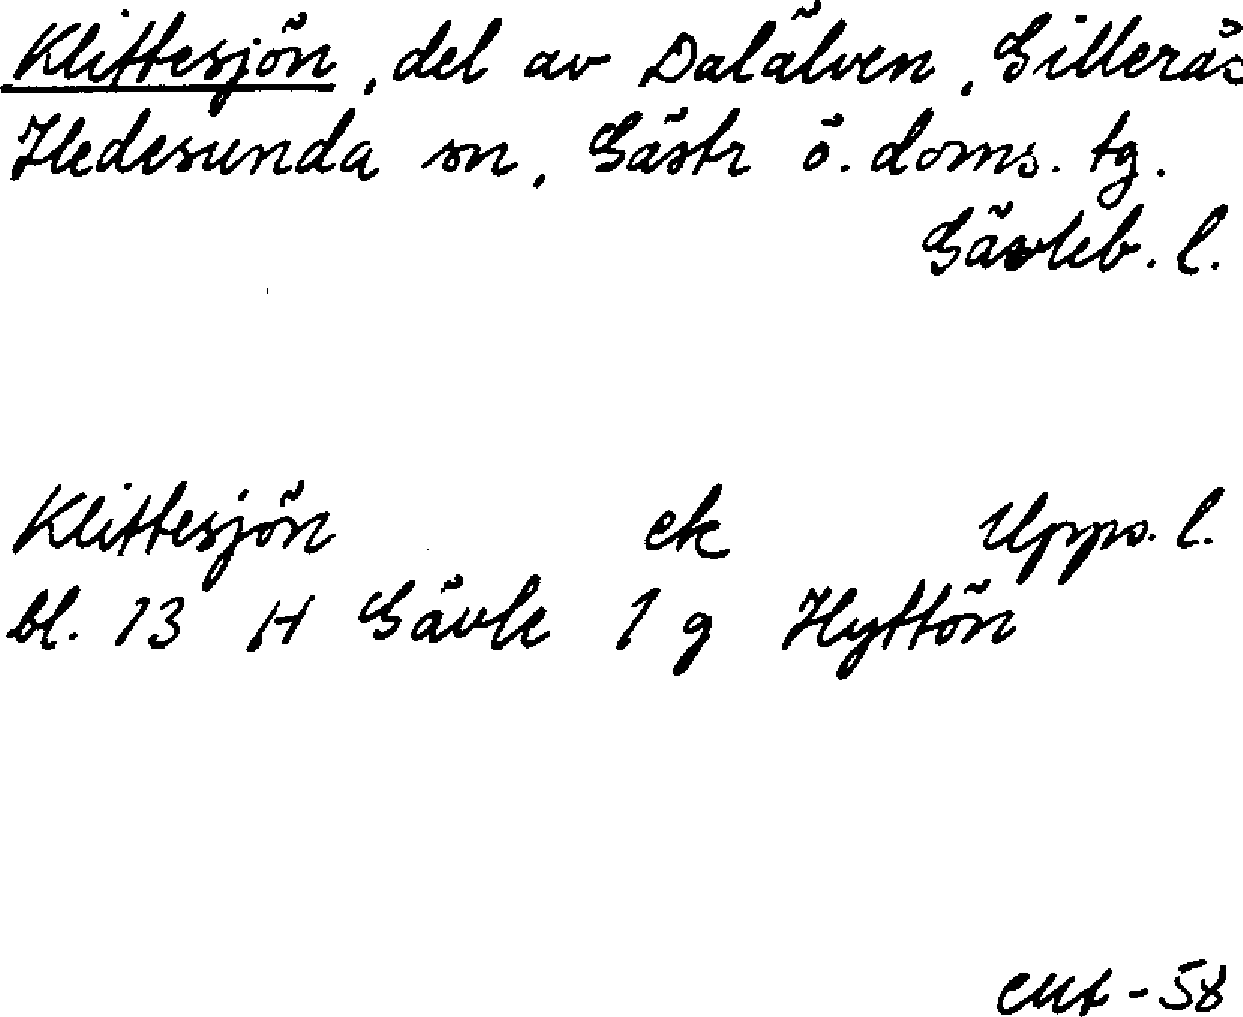 Klittesjön, del av Dalälven, Gillerås
Hedesunda sn, Gästr ö. doms. tg.
Gävleb. l.
Klittesjön ek Upps. l.
bl. 13 H Gävle 1 g Hyttön
-58